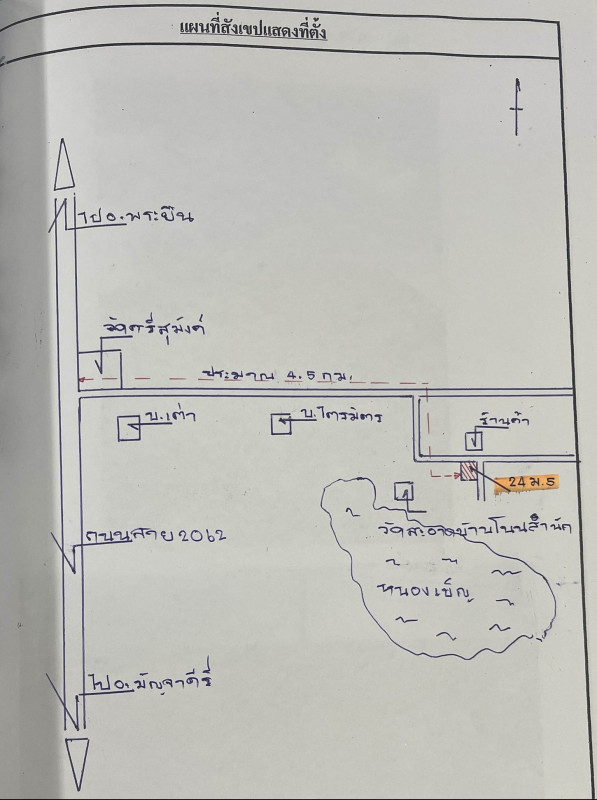 แผนที่สังเขปแสดงที่ตั้ง
ไป อ.พระยืน
วัดศรีสุมังค์
ประมาณ 4.5 กม.
บ.เต่า
บ.ไตรมิตร
ร้านค้า
24 ม.5
วัดสะอาดบ้านโนนสำนัก
ถนนสาย 2062
หนองเบ็ญ
ไป อ.มัญจาคีรี